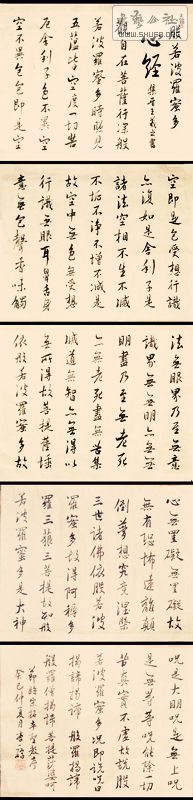 般若波羅蜜多
心經 集晉王羲之書
觀自在菩薩行深般
若波羅蜜多時照見
五蘊皆空度一切苦
厄舍利子色不異空
空不異色色即是空
空即是色受想行識
亦復如是舍利子是
諸法空相不生不滅
不垢不淨不增不減是
故空中無色無受想
行識無眼耳鼻舌身
意無色聲香味觸
法無眼界乃至無意
識界無無明亦無無
明盡乃至無老死
亦無老死盡無苦集
滅道無智亦無得以
無所得故菩提薩埵
依般若波羅蜜多故
心無罣礙無罣礙故
無有恐怖遠離顛
倒夢想究竟涅槃
三世諸佛依般若波
羅蜜多故得阿耨多
羅三藐三菩提故知般
若波羅蜜多是大神
咒是大明咒是無上
咒是無等等咒能除一切
苦真實不虛故說般若
波羅蜜多咒即說咒曰
揭諦揭諦 般羅揭諦
般羅僧揭諦菩提莎婆呵
節臨宋拓本聖教序
癸巳仲夏月李